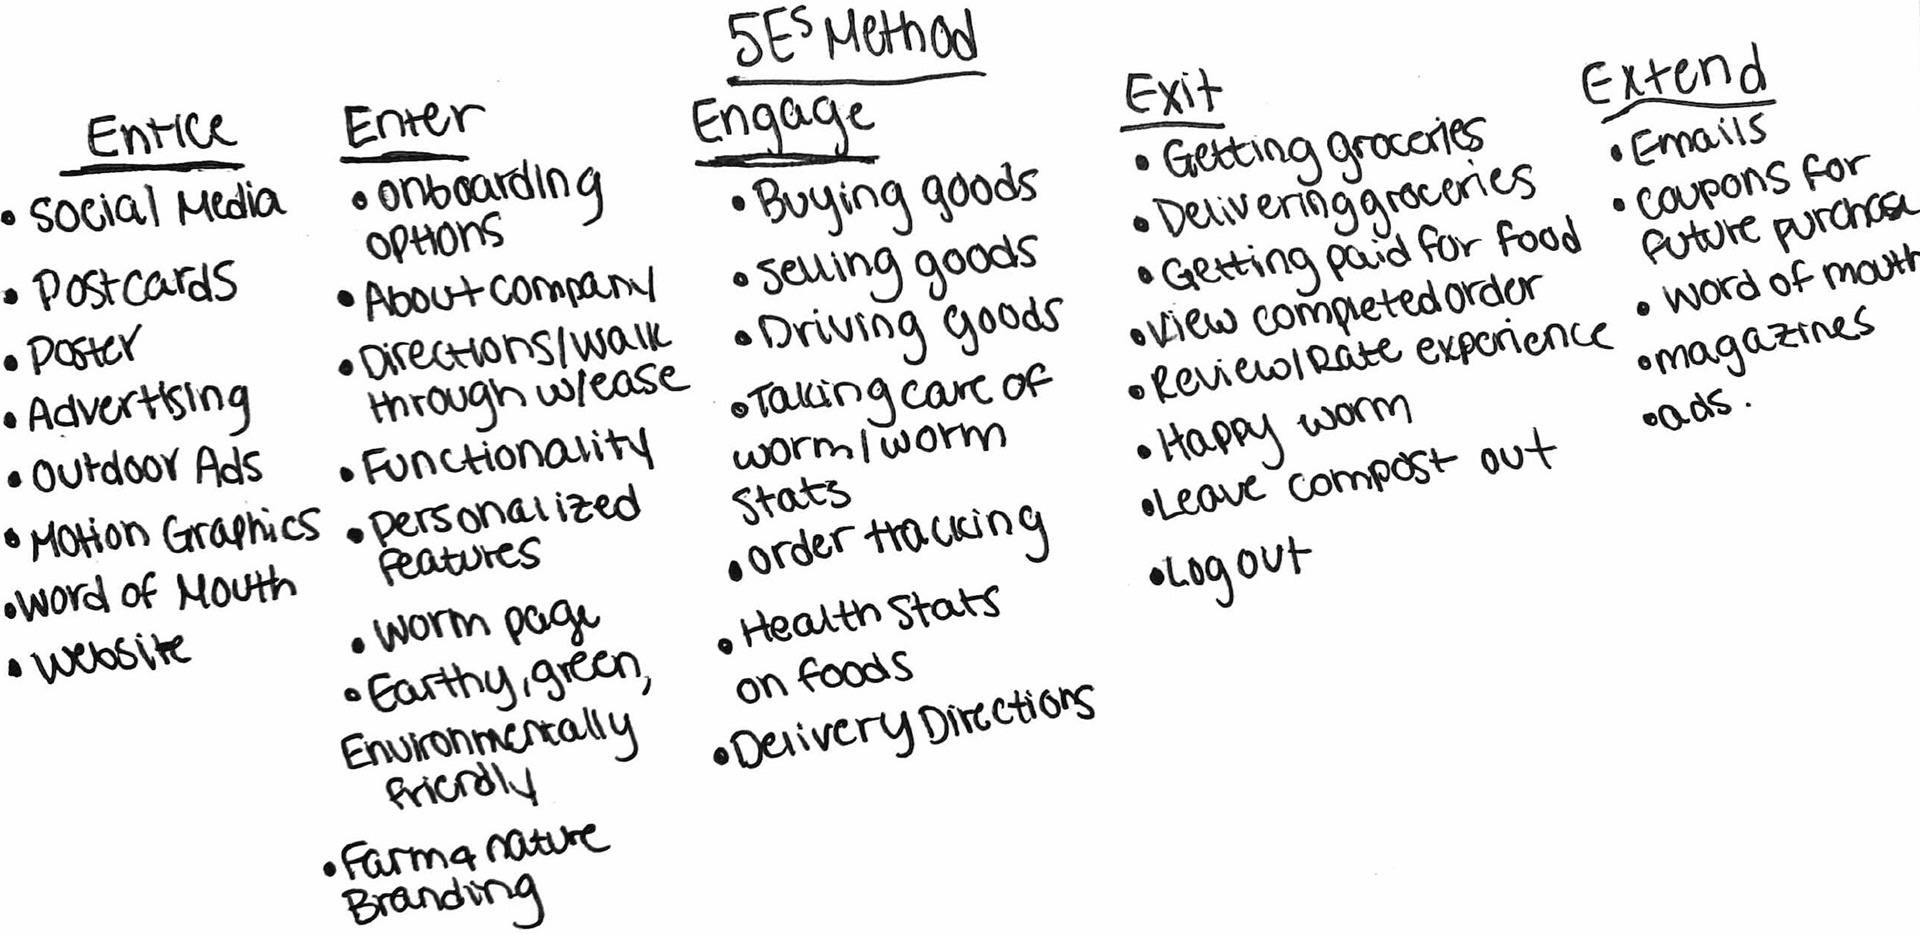 5Es Method
Entice
• Social Media
• Postcards
• Poster
• Advertising
• Outdoor Ads
• Motion Graphics
• Word of Mouth
• Website
Enter
• Onboarding
options
• About company
• Directions/walk
through w/ease
• Functionality
• Personalized
features
• Worm page
• Earthy, green,
Environmentally
friendly
• Farm & nature
Branding
Engage
• Buying goods
• Selling goods
• Driving goods
• Taking care of
worm/worm
stats
• Order tracking
• Health Stats
on foods
• Delivery Directions
Exit
• Getting groceries
• Delivering groceries
• Getting paid for food
• View completed order
• Review/Rate experience
• Happy worm
• Leave compost out
• Log out
Extend
• Emails
• Coupons for
future purchase
• Word of mouth
• magazines
• ads.